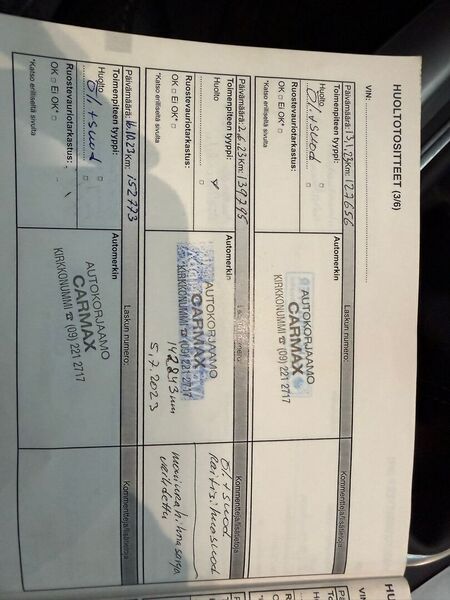 HUOLTOTOSITTEET (3/6)
VIN:
Päivämäärä: 13.1.23 Km: 127656
Laskun numero:
Kommentteja/lisätietoja
Toimenpiteen tyyppi:
Automerkin
Huolto
Öl.+suod
AUTOKORJAAMO
CARMAX
KIRKKONUMMI ☎ (09) 221 2717
Ruostevauriotarkastus:
OK □ Ei OK* □
*Katso erilliseltä sivulta
Päivämäärä: 2.6.23 Km: 139795
Laskun numero:
Kommentteja/lisätietoja
Toimenpiteen tyyppi:
Automerkin
Huolto
AUTOKORJAAMO
CARMAX
KIRKKONUMMI ☎ (09) 221 2717
Öl.+suod
Ruostevauriotarkastus:
OK □ Ei OK* □
5.7.2023
*Katso erilliseltä sivulta
Päivämäärä: 6.10.23 Km: 152773
Laskun numero:
Kommentteja/lisätietoja
Toimenpiteen tyyppi:
Automerkin
Huolto
Öl.+suod
AUTOKORJAAMO
CARMAX
KIRKKONUMMI ☎ (09) 221 2717
Ruostevauriotarkastus:
OK □ Ei OK* □
*Katso erilliseltä sivulta